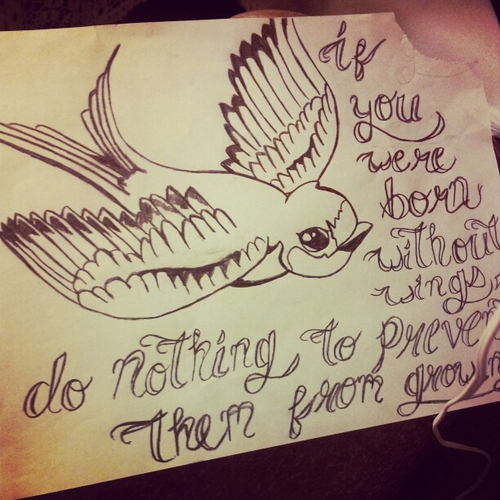 if
you
were
born
without
wings,
do nothing to preven
them from growin